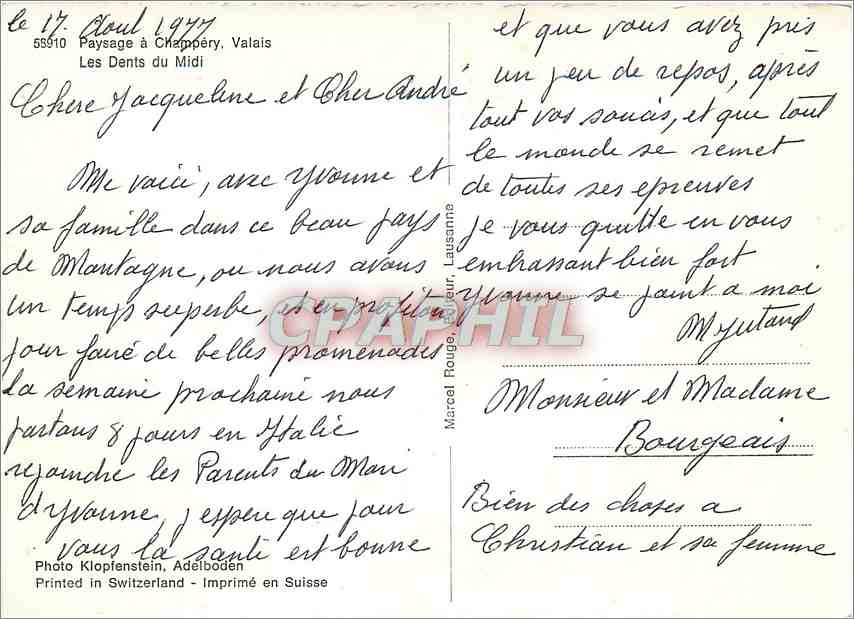 le 17. Aout 1977
56910 Paysage à Champéry, Valais
Les Dents du Midi
Chere Jacqueline et Cher André
Me voici, avec Yvonne et
sa famille dans ce beau pays
de Montagne, ou nous avons
un temps superbe, et en profiton
pour faire de belles promenades
La semaine prochaine nous
partons 8 jours en Italie
rejoindre les Parents du Mari
d'Yvonne, j'espere que pour
vous la santé est bonne
Photo Klopfenstein, Adelboden
Printed in Switzerland - Imprimé en Suisse
Marcel Rouge, éditeur, Lausanne
CPAPHIL
et que vous avez pris
un peu de repos, après
tout vos soucis, et que tout
le monde se remet
de toutes ses epreuves
je vous quitte en vous
embrassant bien fort
Yvonne se joint a moi
Monsieur et Madame
Bourgeais
Bien des choses a
Christian et sa femme